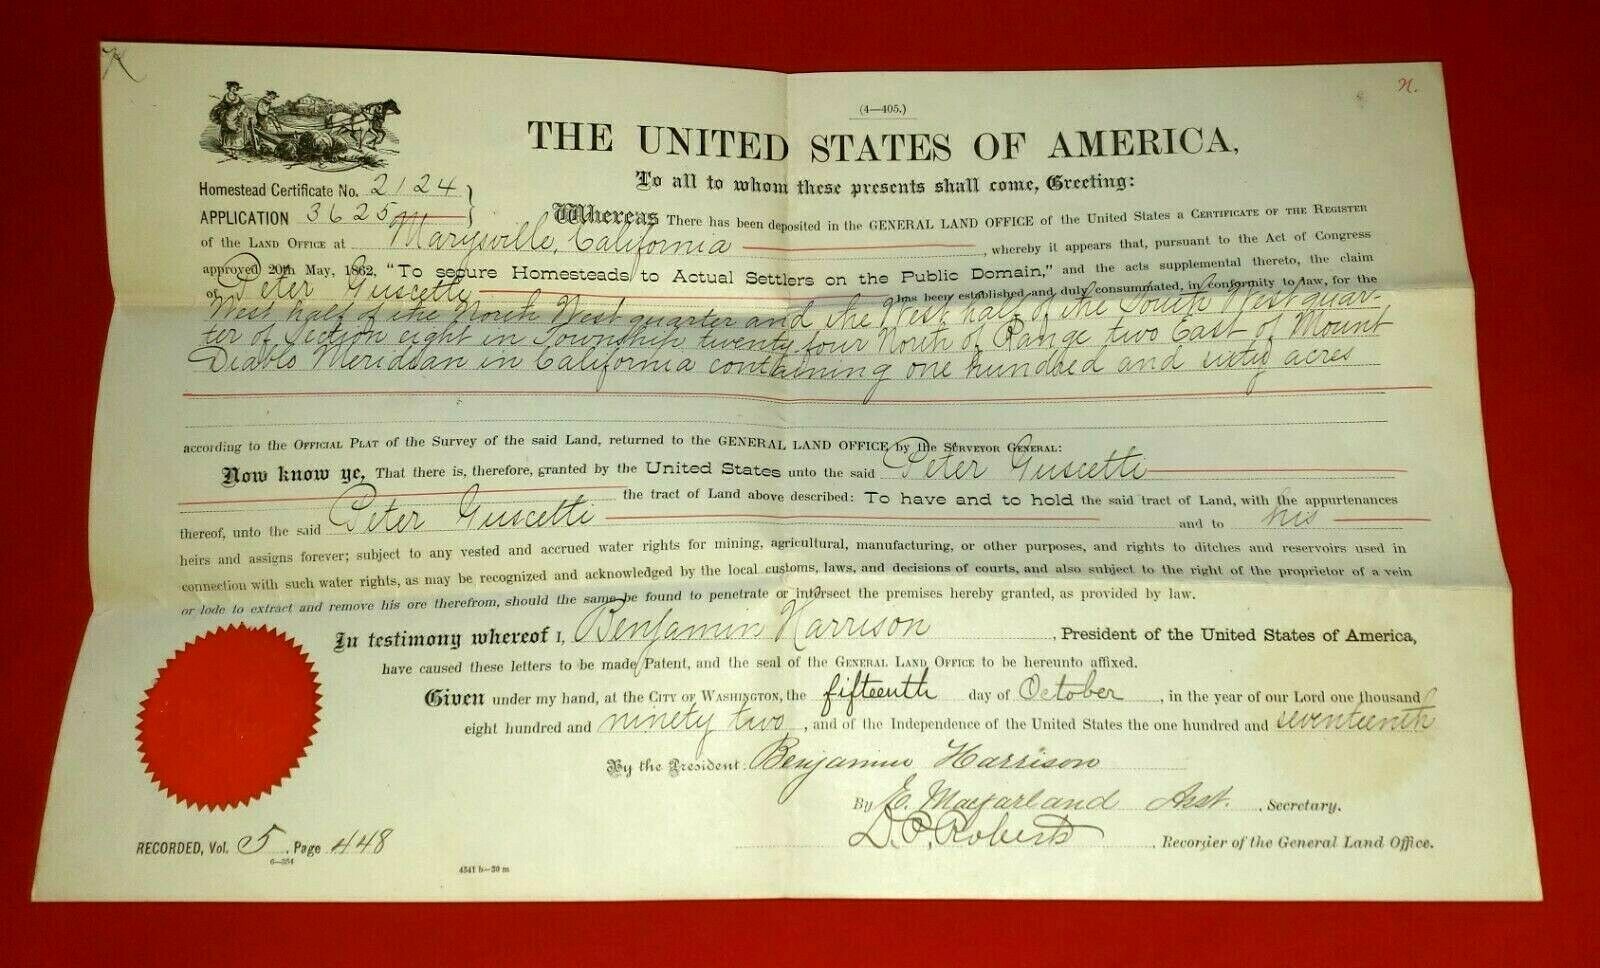 N
n.
(4—405.)
THE UNITED STATES OF AMERICA,
To all to whom these presents shall come, Greeting:
Homestead Certificate No. 2124
APPLICATION 3625
Whereas There has been deposited in the GENERAL LAND OFFICE of the United States a CERTIFICATE OF THE REGISTER
of the LAND OFFICE at Marysville, California, whereby it appears that, pursuant to the Act of Congress
approved 20th May, 1862, "To secure Homesteads to Actual Settlers on the Public Domain," and the acts supplemental thereto, the claim
of Peter Guscetti has been established and duly consummated, in conformity to law, for the
West half of the North West quarter and the West half of the South West quar-
ter of Section eight in Township twenty four North of Range two East of Mount
Diablo Meridian in California containing one hundred and sixty acres
according to the OFFICIAL PLAT of the Survey of the said Land, returned to the GENERAL LAND OFFICE by the SURVEYOR GENERAL:
Now know ye, That there is, therefore, granted by the United States unto the said Peter Guscetti
the tract of Land above described: To have and to hold the said tract of Land, with the appurtenances
thereof, unto the said Peter Guscetti and to his
heirs and assigns forever; subject to any vested and accrued water rights for mining, agricultural, manufacturing, or other purposes, and rights to ditches and reservoirs used in
connection with such water rights, as may be recognized and acknowledged by the local customs, laws, and decisions of courts, and also subject to the right of the proprietor of a vein
or lode to extract and remove his ore therefrom, should the same be found to penetrate or intersect the premises hereby granted, as provided by law.
In testimony whereof I, Benjamin Harrison, President of the United States of America,
have caused these letters to be made Patent, and the seal of the GENERAL LAND OFFICE to be hereunto affixed.
Given under my hand, at the CITY OF WASHINGTON, the fifteenth day of October, in the year of our Lord one thousand
eight hundred and ninety two, and of the Independence of the United States the one hundred and seventeenth
By the President: Benjamin Harrison
By E. Macfarland Asst. Secretary.
D. P. Roberts, Recorder of the General Land Office.
RECORDED, Vol. 5, Page 448
6—354
4541 b—30 m